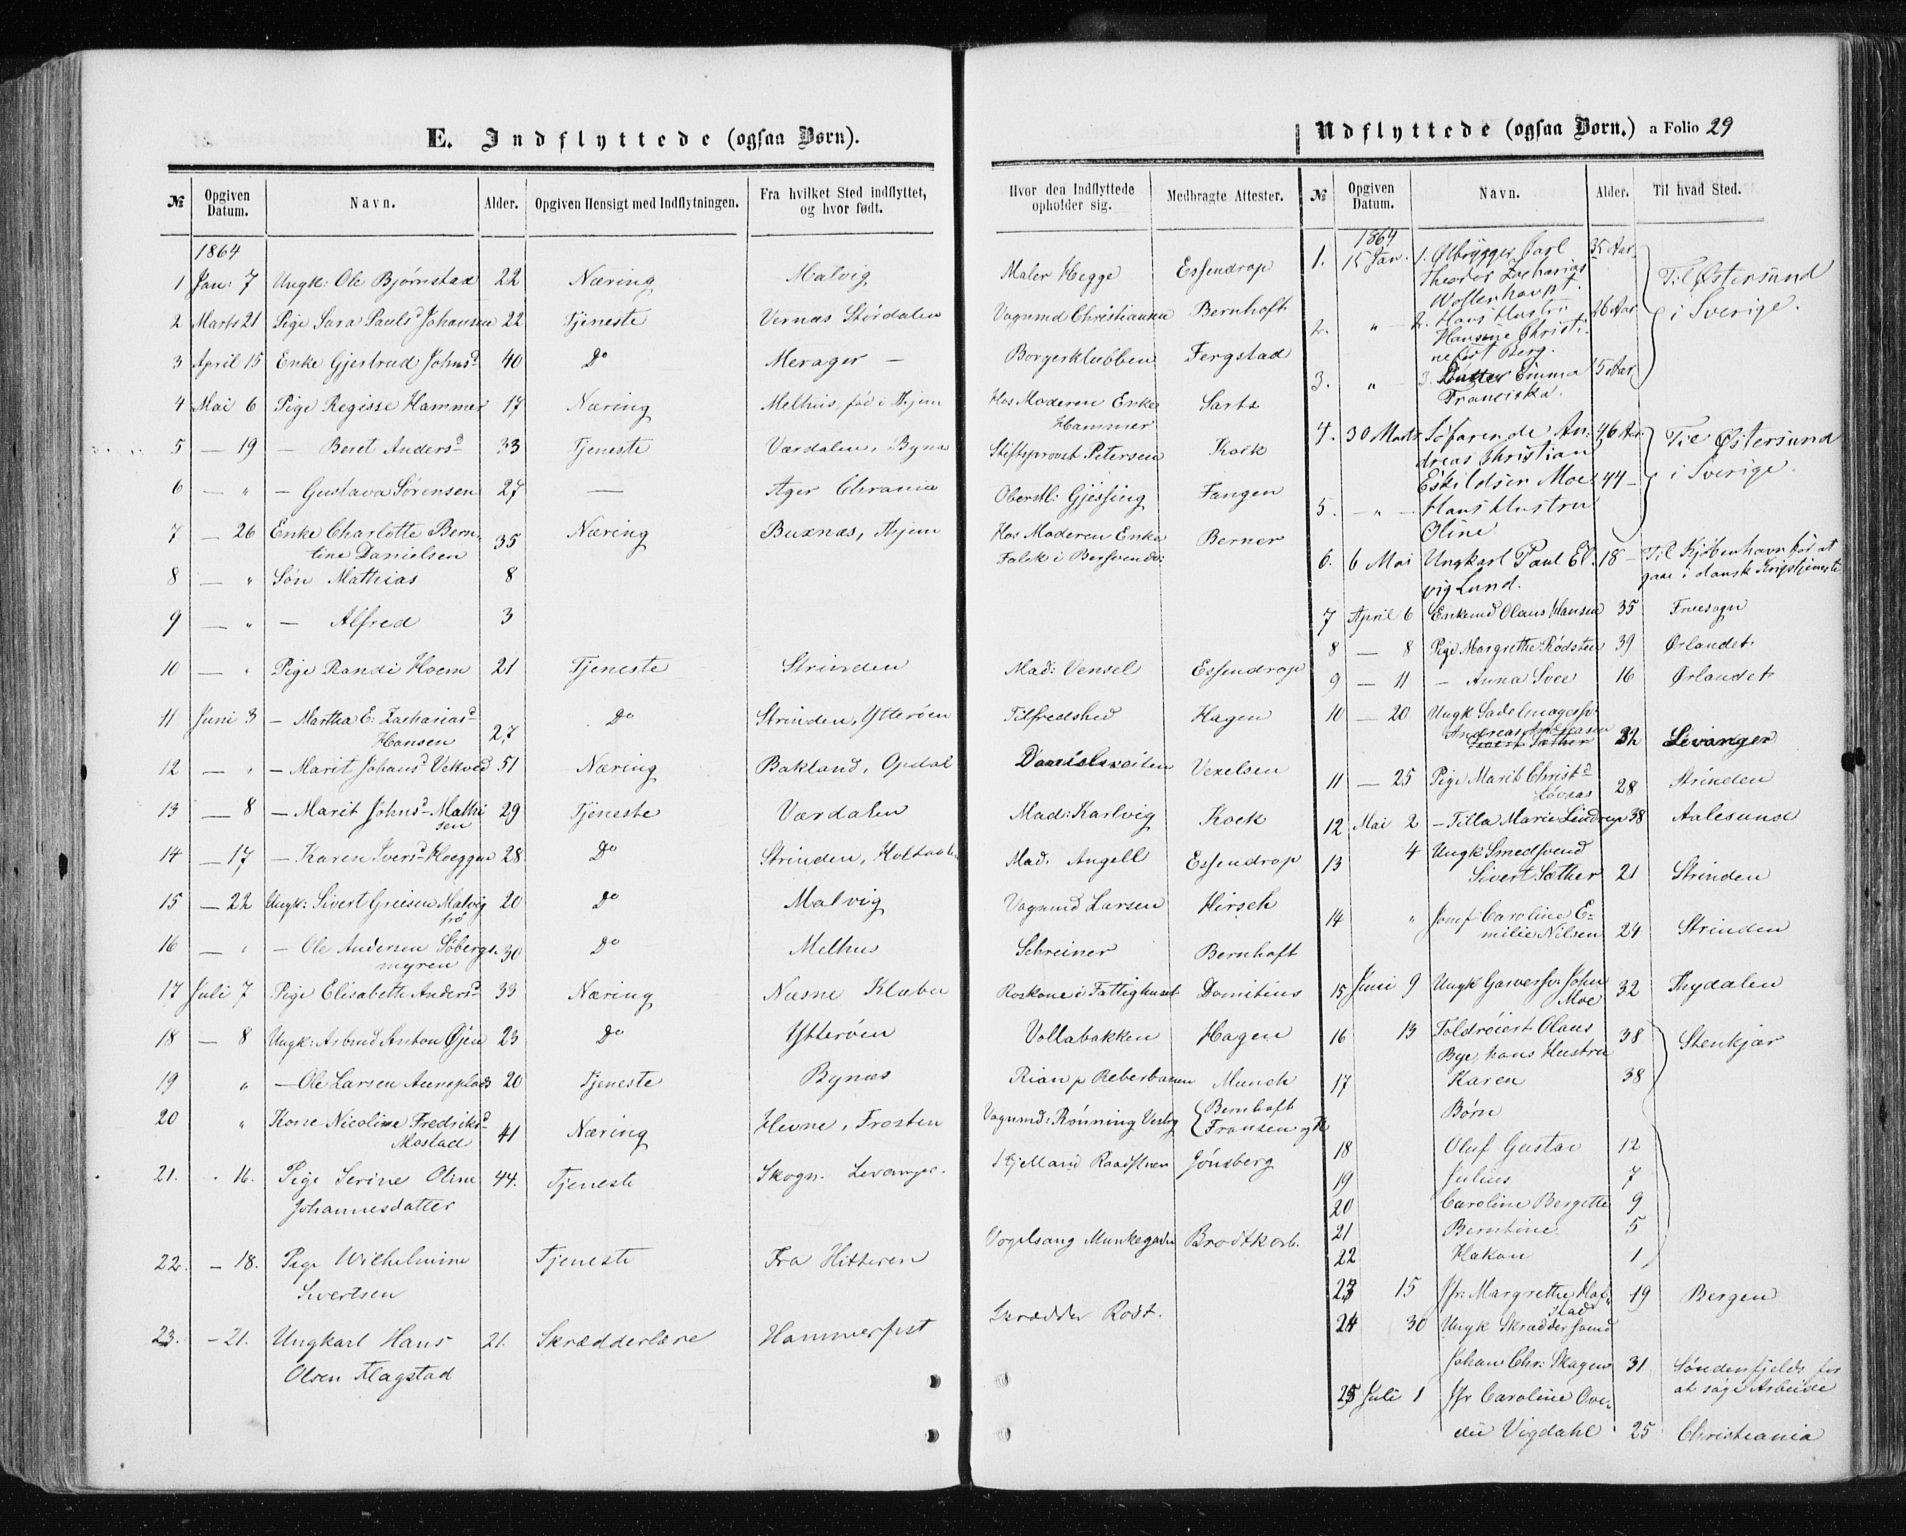 E. Indflyttede (ogsaa Børn).
№ Opgiven Datum. Navn. Alder. Opgiven Hensigt med Indflytningen. Fra hvilket Sted indflyttet, og hvor født. Hvor den Indflyttede opholder sig. Medbragte Attester.
1864
1 Jan: 7 Ungk: Ole Bjørnstad 22 Næring Malvig Maler Hegge Essendrop
2 Marts 21 Pige Sara Pauls Johansen 22 Tjeneste Vernæs Størdalen Vognmd Christiansen Bernhoft
3 April 15 Enke Gjertrud Johnsd 40 Do Merager — Borgerklubben Fergstad
4 Mai 6 Pige Regisse Hammer 17 Næring Melhus, fød i Hjem Hos Moderen Enke Sartz
Hammer
5 — 19 — Beret Andersd 33 Tjeneste Værdalen, Bynæs Stiftsprovst Petersen Kock
6 — " — Gustava Sørensen 27 — Ager Chrania Oberstl: Gjessing Fangen
7 — 26 Enke Charlotte Bern- 35 Næring Buxnæs, Hjem Hos Moderen Enke Berner
tine Danielsen Falck i Bersvendv:
8 — " Søn Mathias 8
9 — " — Alfred 3
10 — " Pige Randi Hoem 21 Tjeneste Strinden Mad: Vensel Essendrop
11 Juni 3 — Martha E. Zachariasd 27 Do Strinden, Ytterøen Tilfredshed Hagen
Hansen
12 — " — Marit Johansd Vekved 51 Næring Bakland, Opdal Danielsveiten Vexelsen
13 — 8 — Marit Johnsd Mathi 29 Tjeneste Værdalen Mad: Karlvig Kock
sen
14 — 17 — Karen Iversd Hoeggen 28 Do Strinden, Holtaalen Mad. Angell Essendrop
15 — 22 Ungk: Sivert Griesen Malvig 20 Do Malvig Vognmd Larsen Hirsch
16 — " — Ole Andersen Søbergs- 30 Do Melhus Schreiner Bernhoft
myren
17 Juli 7 Pige Elisabeth Andersd 33 Næring Næsne Klæbu Roskone i Fattighuset Domitius
18 — 8 Ungk: Arbmd Anton Øjen 23 Do Ytterøen Vollabakken Hagen
19 " — Ole Larsen Auneplads 20 Tjeneste Bynæs Rian p Reberbanen Munch
20 " Kone Nicoline Fredriksd 41 Næring Hevne, Frosten Vognmd: Rønning Vestby Bernhoft
Mostad Fransen
21. " 16. Pige Serine Oline 44. Tjeneste Skogn. Levanger Kjelland Raadstuen Jønsberg
Johannesdatter
22. — 18. Pige Wilhelmine Tjeneste Fra Hitteren Vogelsang Munkegaden Brodtkorb.
Sivertsen
23. — 21. Ungkarl Hans 21. Skrædderlære Hammerfest Skrædder Rodt.
Olsen Flagstad
Udflyttede (ogsaa Børn.) a Folio 29
№ Opgiven Datum. Navn. Alder. Til hvad Sted.
1864
1. 15 Jan. 1. Ølbrygger Carl 35 Aar. Til Østersund
Theodor Zacharias i Sverige.
Wollerhaupt.
2. " — 2. Hans Hustru 26 Aar
Hansine Christi-
ne født Berg.
3. " — 3. Datter Emma 5 Aar.
Franciska.
4. 30 Marts Søfarende An- 46 Aar Til Østersund
dreas Christian i Sverige.
Eskildsen Moe
5. — " — Hans Hustru 44 —
Oline
6. 6 Mai Ungkarl Paul El- 18 — Til Kjøbenhavn for at
vig Lund. gaae i dansk Krigstjeneste
7 April 6 Enkemd Olaus Hansen 35 Fruesogn
8 — 8 Pige Margrethe Rødsten 39 Ørlandet
9 — 11 — Anna Svee 16 Ørlandet
10 — 20 Ungk Sadelmagersv.
Andreas Andreasen
Sæther 32 Levanger
11 — 25 Pige Marit Christd 28 Strinden
Løvaas
12 Mai 2 — Tilla Marie Lindrup 38 Aalesund
13 4 Ungk Smedsvend
Sivert Sæther 21 Strinden
14 " Jomf: Caroline E-
milie Nilsen 24 Strinden
15 Juni 9 Ungk Garversv: John 32 Thydalen
Moe
16 13 Toldroiert Olaus 38 Stenkjær
Bye, hans Hustru
17 Karen 38
Børn
18 Oluf Gustav 12
19 Julius 7
20 Caroline Bergette 9
21 Berntine 5
22 Hakon 1
23 15 Jfr: Margrethe Hof- 19 Bergen
stad
24 30 Ungk Skræddersvend
Johan Chr: Skagen 31 Søndenfjelds for
at søge Arbeide
25 Juli 1 Jfr Caroline Ove-
die Vigdahl 25 Christiania